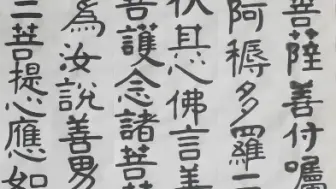 菩薩善付囑
阿耨多羅三
伏其心佛言善
善護念諸菩薩
為汝說善男
三菩提心應如